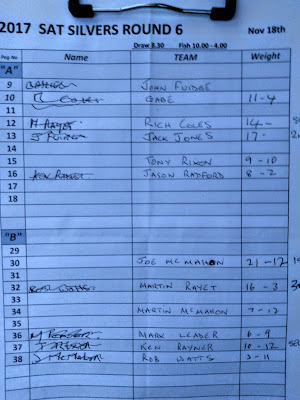 2017 SAT SILVERS ROUND 6 Nov 18th
Draw 8.30 Fish 10.00 - 4.00
Peg No. Name TEAM Weight
"A"
9 JOHN FUIDGE
10 GABE 11-4
11
12 RICH COLES 14-
13 JACK JONES 17-
14
15 TONY RIXON 9-10
16 JASON RADFORD 8-2
17
18
"B"
29
30 JOE MCMAHON 21-12
31
32 MARTIN RAYET 16-3
33
34 MARTIN MCMAHON 7-12
35
36 MARK LEADER 6-9
37 KEN RAYNER 10-12
38 ROB WATTS 3-11